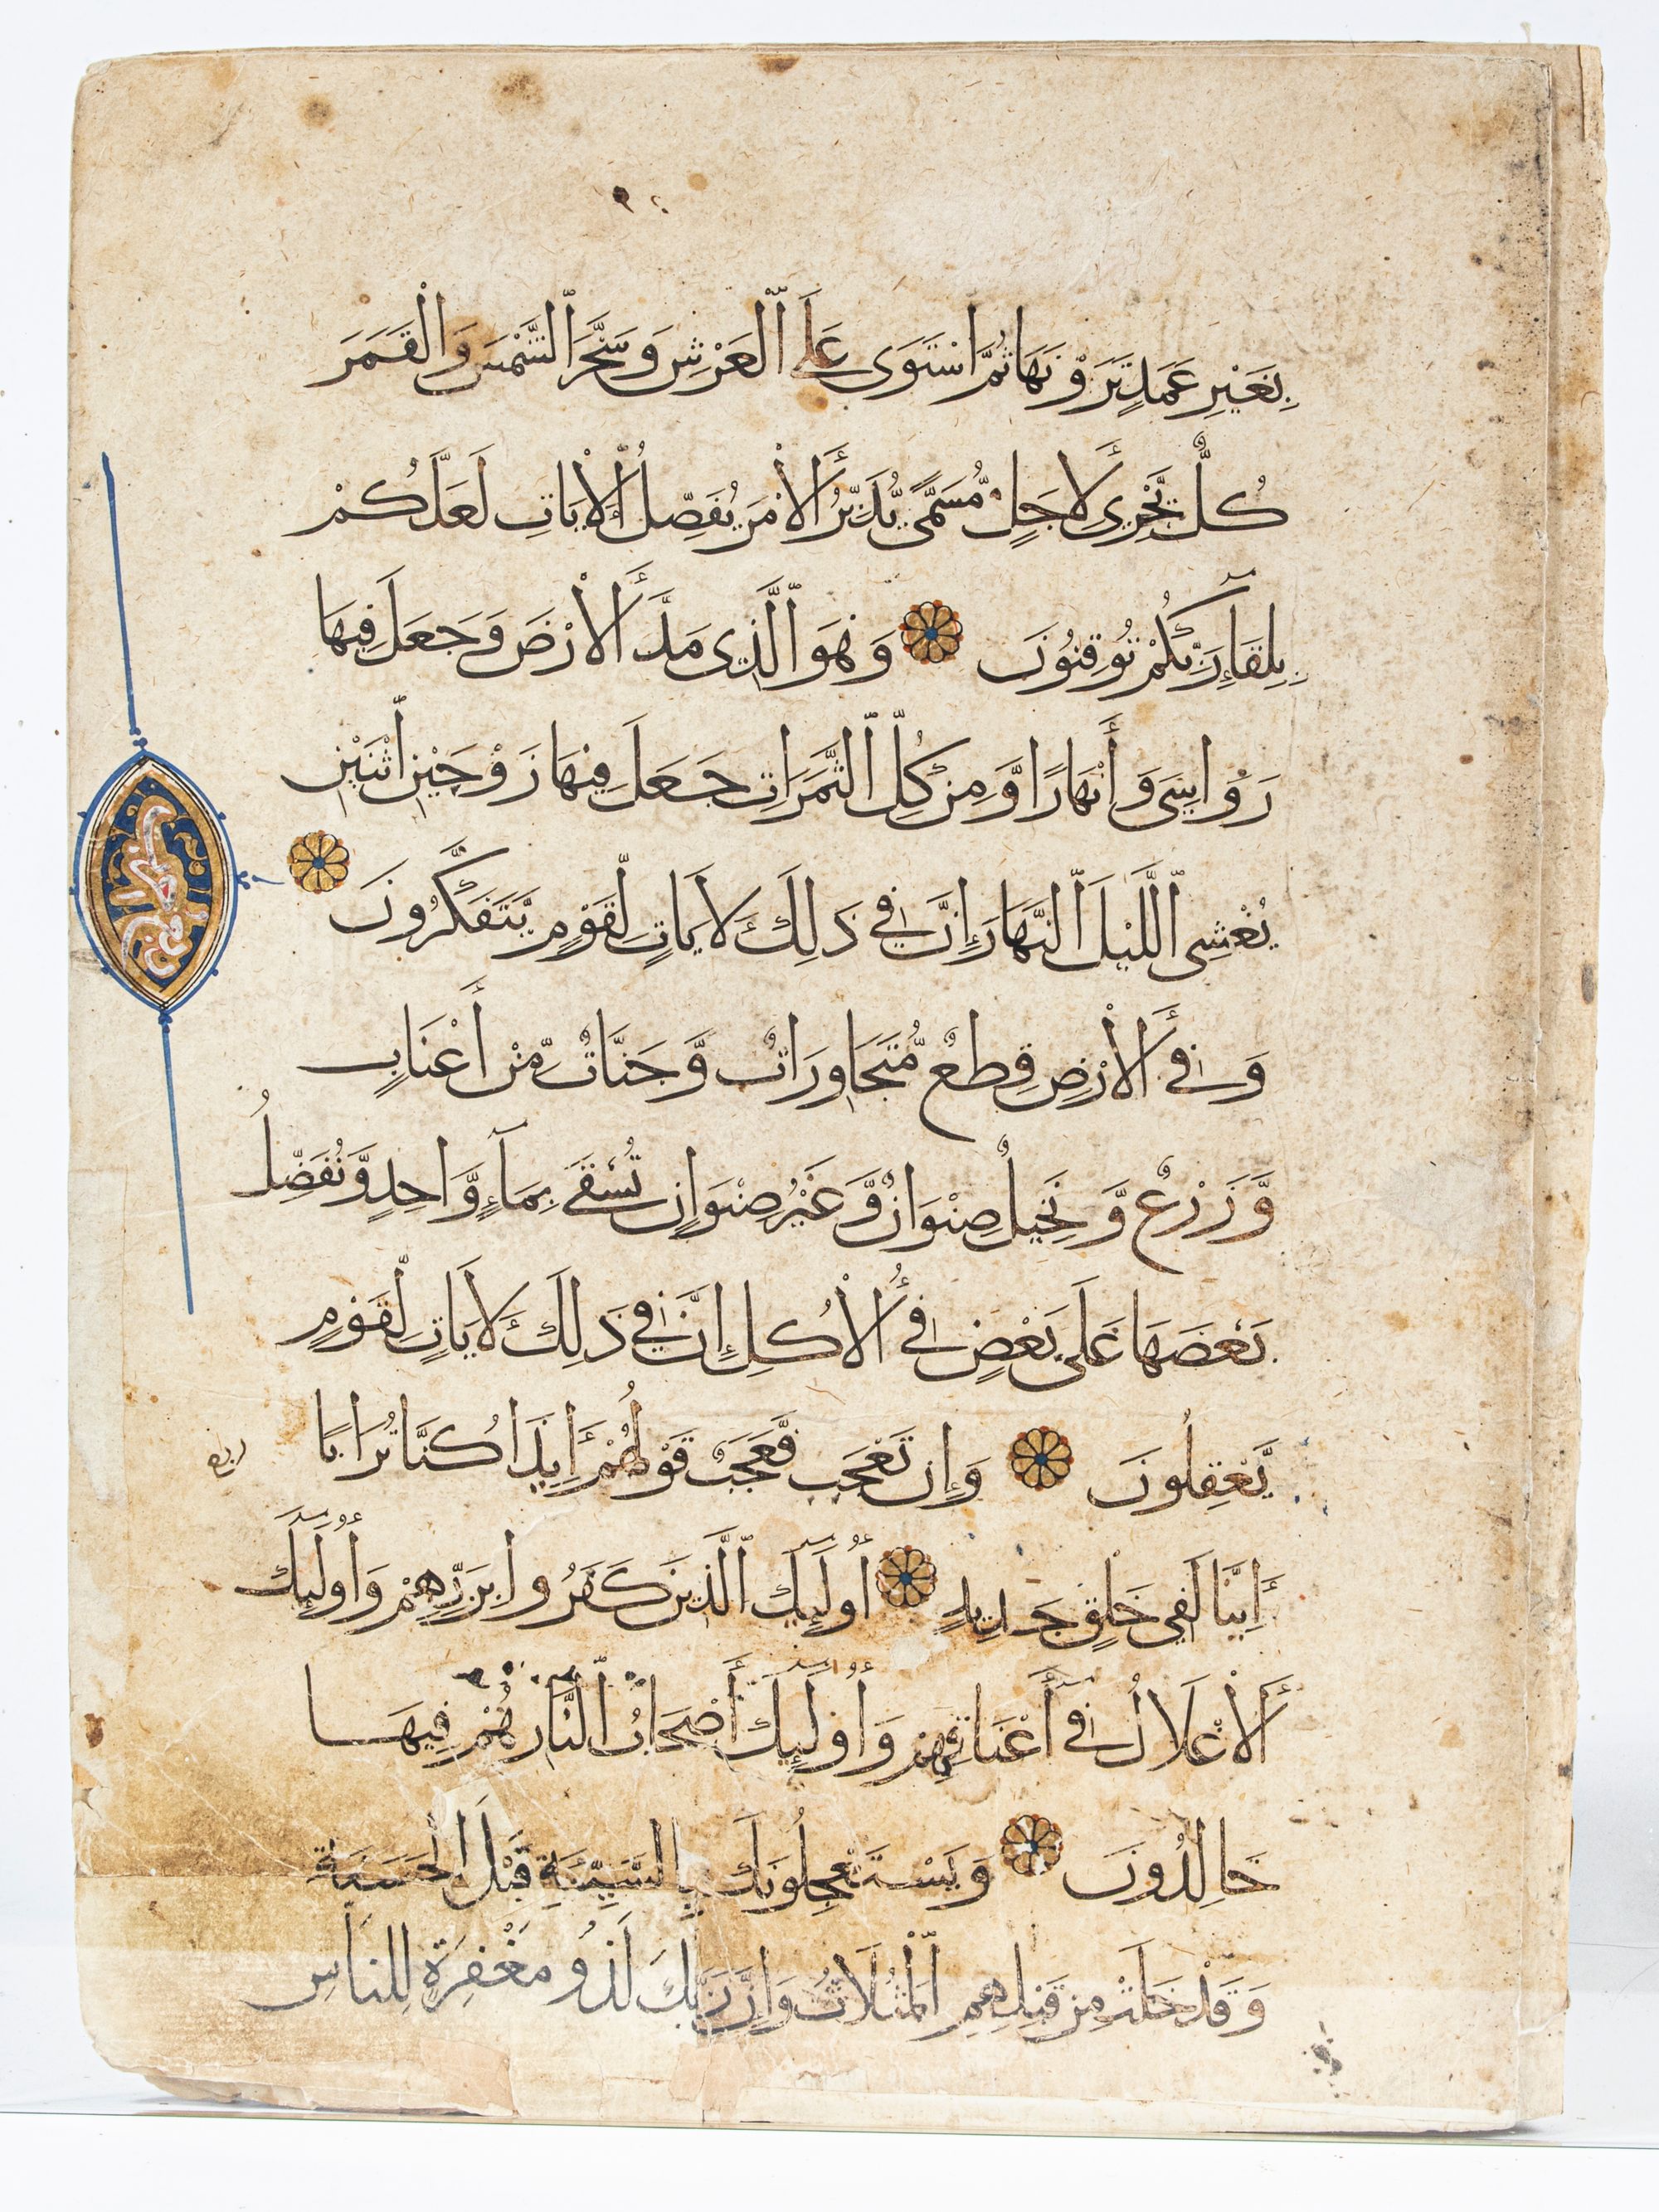 بِغَيْرِ عَمَدٍ تَرَوْنَهَا ثُمَّ اسْتَوَى عَلَى الْعَرْشِ وَسَخَّرَ الشَّمْسَ وَالْقَمَرَ
كُلٌّ يَّجْرِى لِأَجَلٍ مُّسَمًّى يُّدَبِّرُ الْأَمْرَ يُفَصِّلُ الْأَيَاتِ لَعَلَّكُمْ
بِلِقَآءِ رَبِّكُمْ تُوقِنُونَ وَهُوَ الَّذِى مَدَّ الْأَرْضَ وَجَعَلَ فِيهَا
رَوَاسِىَ وَأَنْهَارًا وَّمِن كُلِّ الثَّمَرَاتِ جَعَلَ فِيْهَا زَوْجَيْنِ اثْنَيْنِ
يُغْشِى اللَّيْلَ النَّهَارَ إِنَّ فِي ذَلِكَ لَأَيَاتٍ لِّقَوْمٍ يَّتَفَكَّرُونَ
وَفِي الْأَرْضِ قِطَعٌ مُّتَجَاوِرَاتٌ وَّجَنَّاتٌ مِّنْ أَعْنَابٍ
وَّزَرْعٌ وَّنَخِيلٌ صِنْوَانٌ وَّغَيْرُ صِنْوَانٍ تُسْقَى بِمَآءٍ وَّاحِدٍ وَّنُفَضِّلُ
بَعْضَهَا عَلَى بَعْضٍ فِي الْأُكُلِ إِنَّ فِي ذَلِكَ لَأَيَاتٍ لِّقَوْمٍ
يَّعْقِلُونَ وَإِن تَعْجَب فَعَجَبٌ قَوْلُهُمْ أَإِيذَا كُنَّا تُرَابًا
ربع
أَإِيِنَّا لَفِي خَلْقٍ جَدِيدٍ أُولَٓئِكَ الَّذِينَ كَفَرُوا بِرَبِّهِمْ وَأُولَٓئِكَ
الْأَغْلَالُ فِي أَعْنَاقِهِمْ وَأُولَٓئِكَ أَصْحَابُ النَّارِ هُمْ فِيهَا
خَالِدُونَ وَيَسْتَعْجِلُونَكَ بِالسَّيِّئَةِ قَبْلَ الْحَسَنَةِ
وَقَدْ خَلَتْ مِن قَبْلِهِمِ الْمَثُلَاتُ وَإِنَّ رَبَّكَ لَذُو مَغْفِرَةٍ لِلنَّاسِ